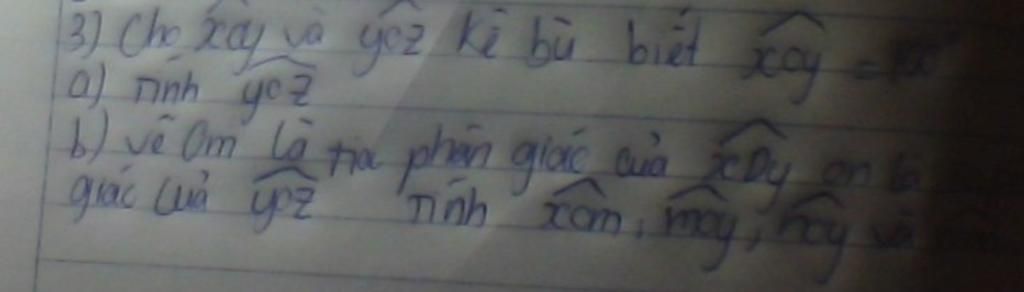 3) Cho xoy và yoz kề bù biết xoy =
a) Tính yoz
b) vẽ Om là tia phân giác của xOy on là
giác của yoz Tính xom, moy, noy và